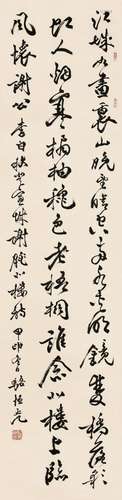 江城如畫裏山晚望晴空兩水夾明鏡雙橋落彩
虹人烟寒橘柚秋色老梧桐誰念北樓上臨
風懷謝公 李白秋登宣城謝朓北樓詩 甲申書 駱恒光